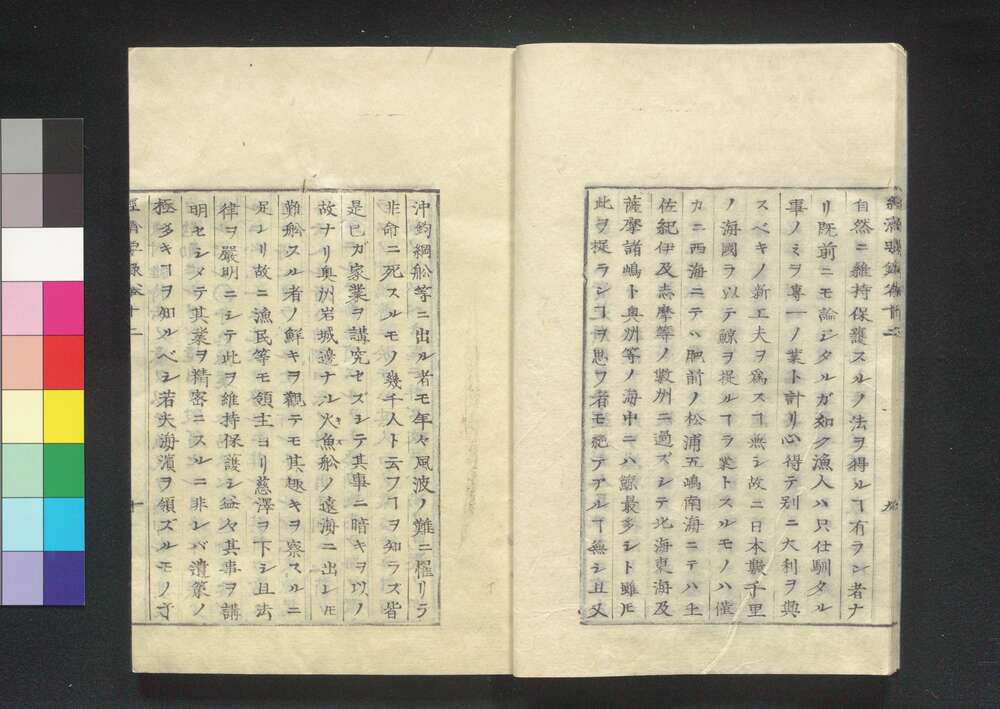 自然ニ維持保護スルノ法ヲ得ルヿ有ラン者ナ
リ既前ニモ論シタルガ如ク漁人ハ只仕馴タル
事ノミヲ專一ノ業ト計リ心得テ別ニ大利ヲ興
スベキノ新工夫ヲ爲スヿ無シ故ニ日本數千里
ノ海國ヲ以テ鯨ヲ捉ルヿヲ業トスルモノハ僅
カニ西海ニテハ肥前ノ松浦五嶋南海ニテハ土
佐紀伊及志摩等ノ數州ニ過ズシテ北海東海及
薩摩諸嶋ト奥州等ノ海中ニハ鯨最多シト雖𪜈
此ヲ捉ランヿヲ思フ者モ絶テアルヿ無シ且又
經濟要録卷十二 九
沖釣綱舩等ニ出ル者モ年々風波ノ難ニ罹リラ
非命ニ死スルモノ幾千人ト云フヿヲ知ラス皆
是已ガ家業ヲ講究セズシテ其事ニ暗キヲ以ノ
故ナリ奥州岩城邊ナル火魚舩ノ遠海ニ出レ𪜈
難舩スル者ノ鮮キヲ觀テモ其趣キヲ察スルニ
足レリ故ニ漁民等モ領主ヨリ慈澤ヲ下シ且法
律ヲ嚴明ニシテ此ヲ維持保護シ益々其事ヲ講
明セシメテ其業ヲ精密ニスルニ非レバ遺策ノ
極多キヿヲ知ルベシ若夫海濱ヲ領ズルモノ寸
經濟要録卷十二 十